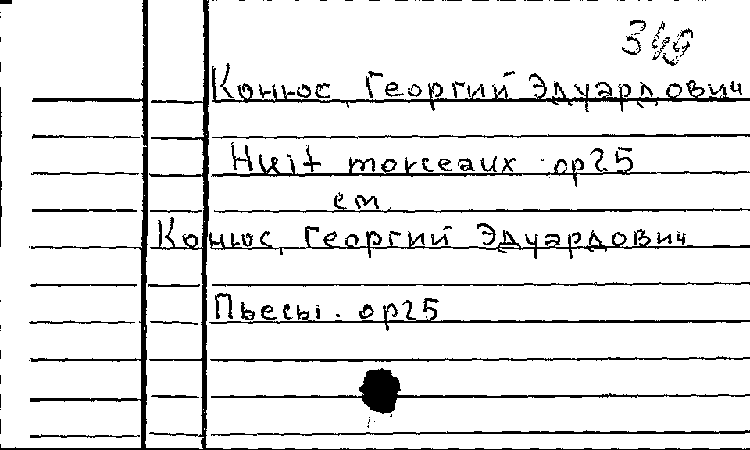 349
Конюс, Георгий Эдуардович
Huit morceaux. op25
см.
Конюс, Георгий Эдуардович
Пьесы. op25